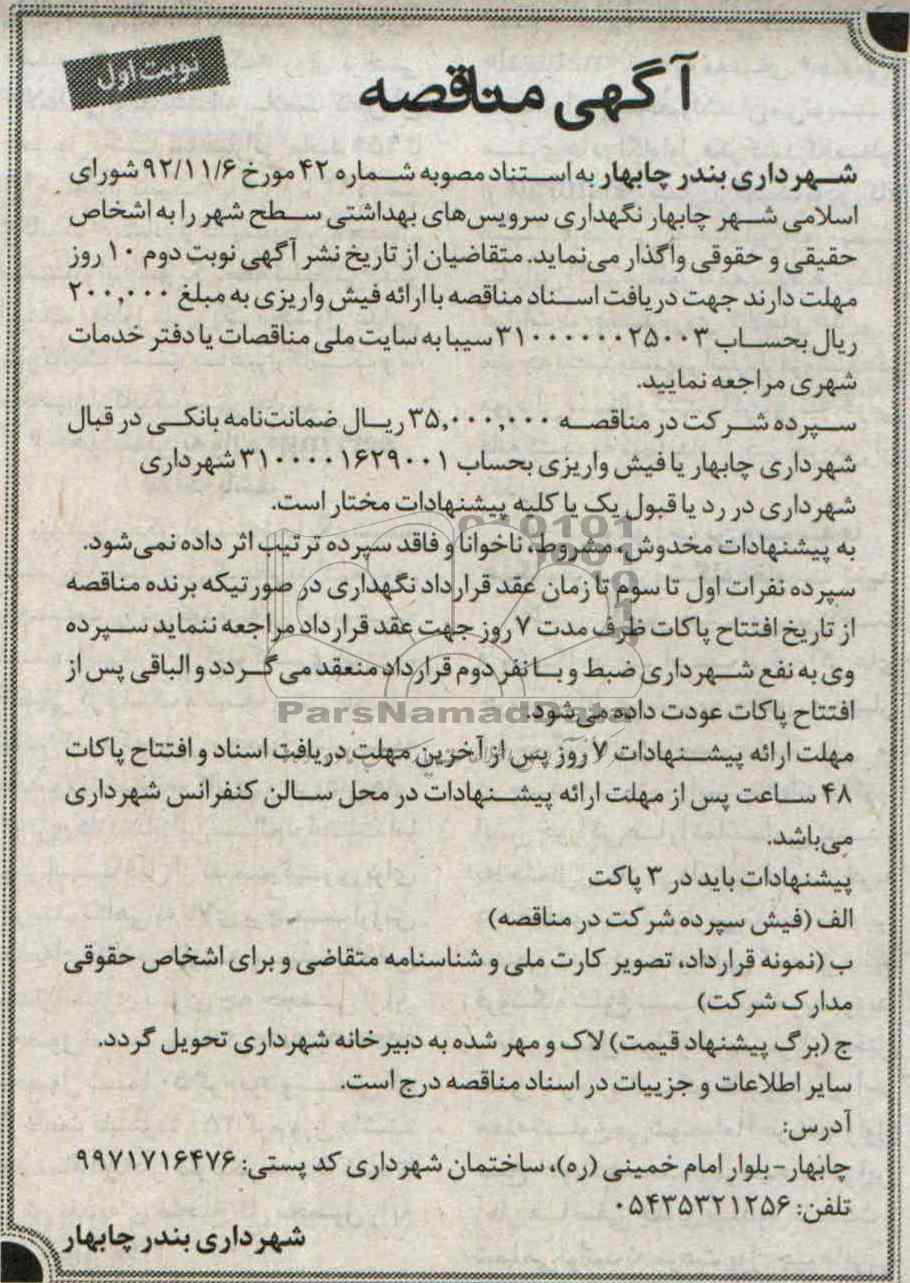 نوبت اول
آگهی مناقصه
شهرداری بندر چابهار به استناد مصوبه شماره ۴۲ مورخ ۹۲/۱۱/۶ شورای
اسلامی شهر چابهار نگهداری سرویس‌های بهداشتی سطح شهر را به اشخاص
حقیقی و حقوقی واگذار می‌نماید. متقاضیان از تاریخ نشر آگهی نوبت دوم ۱۰ روز
مهلت دارند جهت دریافت اسناد مناقصه با ارائه فیش واریزی به مبلغ ۲۰۰,۰۰۰
ریال بحساب ۳۱۰۰۰۰۰۰۲۵۰۰۳ سیبا به سایت ملی مناقصات یا دفتر خدمات
شهری مراجعه نمایید.
سپرده شرکت در مناقصه ۳۵,۰۰۰,۰۰۰ ریال ضمانت‌نامه بانکی در قبال
شهرداری چابهار یا فیش واریزی بحساب ۳۱۰۰۰۰۱۶۲۹۰۰۱ شهرداری
شهرداری در رد یا قبول یک یا کلیه پیشنهادات مختار است.
به پیشنهادات مخدوش، مشروط، ناخوانا و فاقد سپرده ترتیب اثر داده نمی‌شود.
سپرده نفرات اول تا سوم تا زمان عقد قرارداد نگهداری در صورتیکه برنده مناقصه
از تاریخ افتتاح پاکات ظرف مدت ۷ روز جهت عقد قرارداد مراجعه ننماید سپرده
وی به نفع شهرداری ضبط و با نفر دوم قرارداد منعقد می‌گردد و الباقی پس از
افتتاح پاکات عودت داده می‌شود.
ParsNamadData
مهلت ارائه پیشنهادات ۷ روز پس از آخرین مهلت دریافت اسناد و افتتاح پاکات
۴۸ ساعت پس از مهلت ارائه پیشنهادات در محل سالن کنفرانس شهرداری
می‌باشد.
پیشنهادات باید در ۳ پاکت
الف (فیش سپرده شرکت در مناقصه)
ب (نمونه قرارداد، تصویر کارت ملی و شناسنامه متقاضی و برای اشخاص حقوقی
مدارک شرکت)
ج (برگ پیشنهاد قیمت) لاک و مهر شده به دبیرخانه شهرداری تحویل گردد.
سایر اطلاعات و جزییات در اسناد مناقصه درج است.
آدرس:
چابهار- بلوار امام خمینی (ره)، ساختمان شهرداری کد پستی: ۹۹۷۱۷۱۶۴۷۶
تلفن: ۰۵۴۳۵۳۲۱۲۵۶
شهرداری بندر چابهار